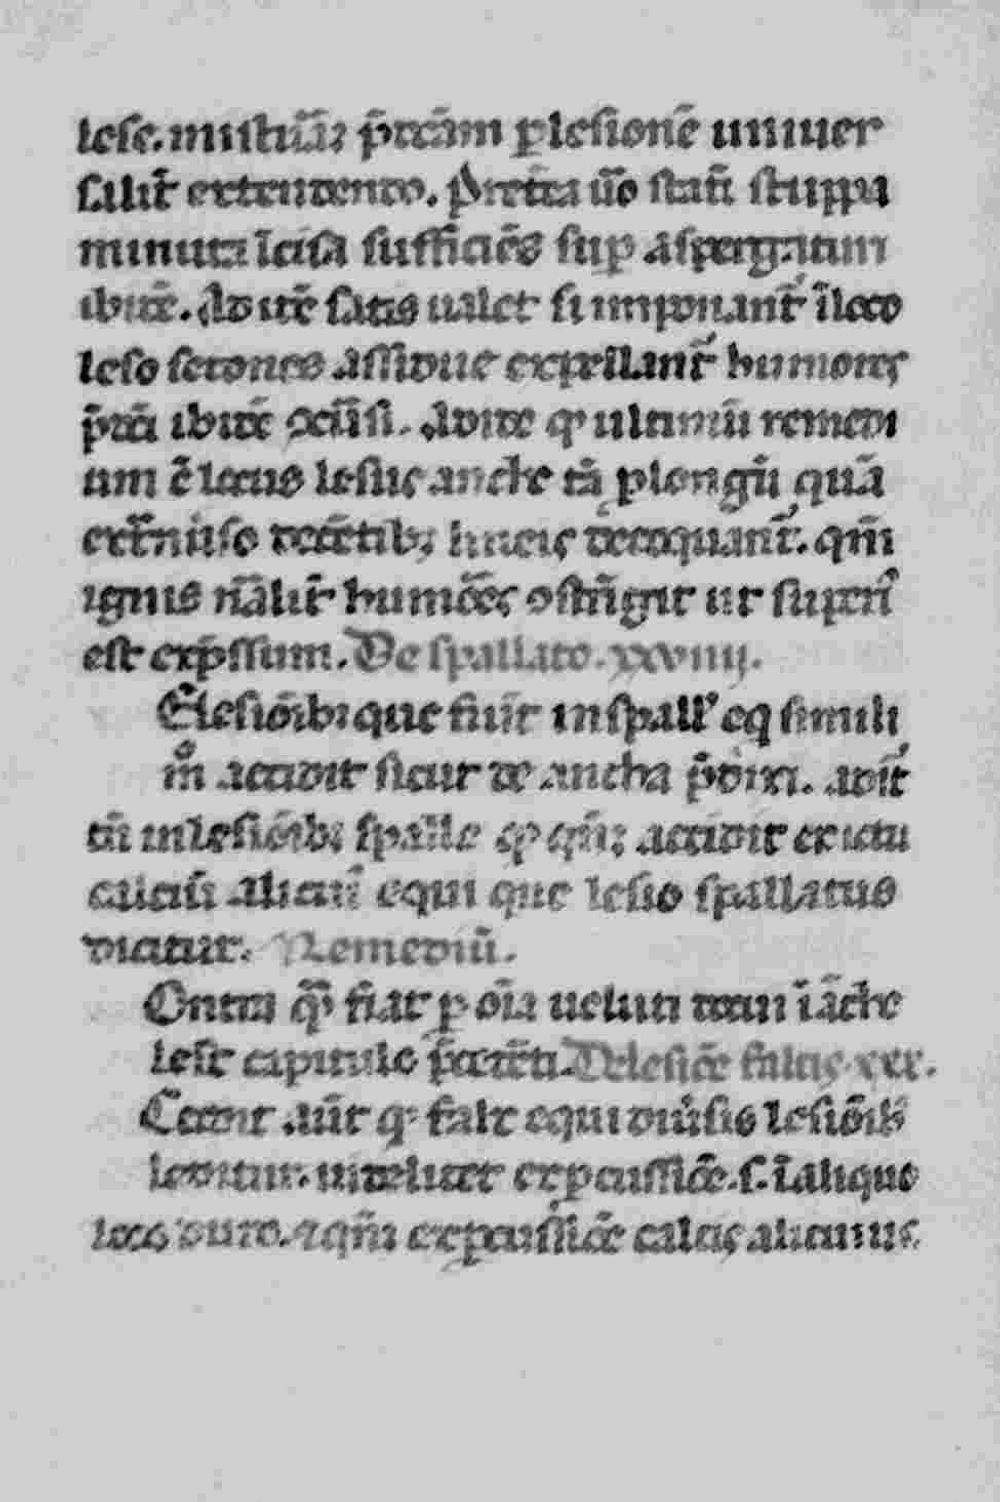 lese. mistuã; p̃ctam̃ ꝑ lesionẽ uniuer
salit̃ extendendo. Pretẽa ũo statĩ stuppa
minuta ĩcisa sufficiẽs suꝑ aspergatur
ibidẽ. Ad idẽ satis ualet si imponant᷑ ĩ loco
leso setones assidue expellant᷑ humores
p̃dcã ibidẽ ꝯclũsi. Adide qꝫ ultimũ remedi
um ẽ locus lesus anche tã ꝑ longũ quã
decẽtibꝫ lineis decoquant᷑. qm̃
ignis nãlit̃ humões ꝯstrĩgit ut supeꝰ
est exp̃ssum. De spallato. xxviiij.
E lesiõibꝫ que fiũt in spall' eq simili
m̊ accidit sicut de ancha p̃dixi. adit̃
tñ in lesiõibꝫ spalle qꝫ qñꝫ accidit ex ictu
calcis̃ alicuiꝰ equi que lesio spallatus
dicitur. Remediũ.
Ontra qd̃ fiat ꝑ oĩa ueluti docui ĩ ãche
lese capitulo p̃cedẽti. De lesiõe falcis. xxx.
Cedit aũt qꝫ falx equi diũsis lesiõibꝫ
leditur. uidelicet ex ꝑcussiõe. s. ĩ aliquo
loco duro. ⁊ qñ ex ꝑcussiõe calcis alicuius